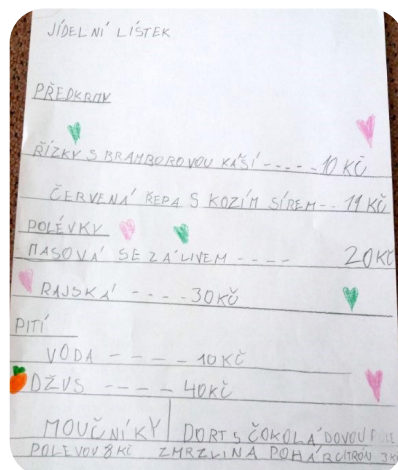 JÍDELNÍ LÍSTEK
PŘEDKRMY
ŘÍZKY S BRAMBOROVOU KAŠÍ - - - - - 10 KČ
ČERVENÁ ŘEPA S KOZÍM SÍREM - - 19 KČ
POLÉVKY
MASOVÁ SE ZÁLIVEM - - - - 20 KČ
RAJSKÁ - - - - 30 KČ
PITÍ
VODA - - - - - 10 KČ
DŽUS - - - - - 40 KČ
MOUČNÍKY DORT S ČOKOLÁDOVOU
POLEVOU 8 KČ ZMRZLINA POHÁR CITRON